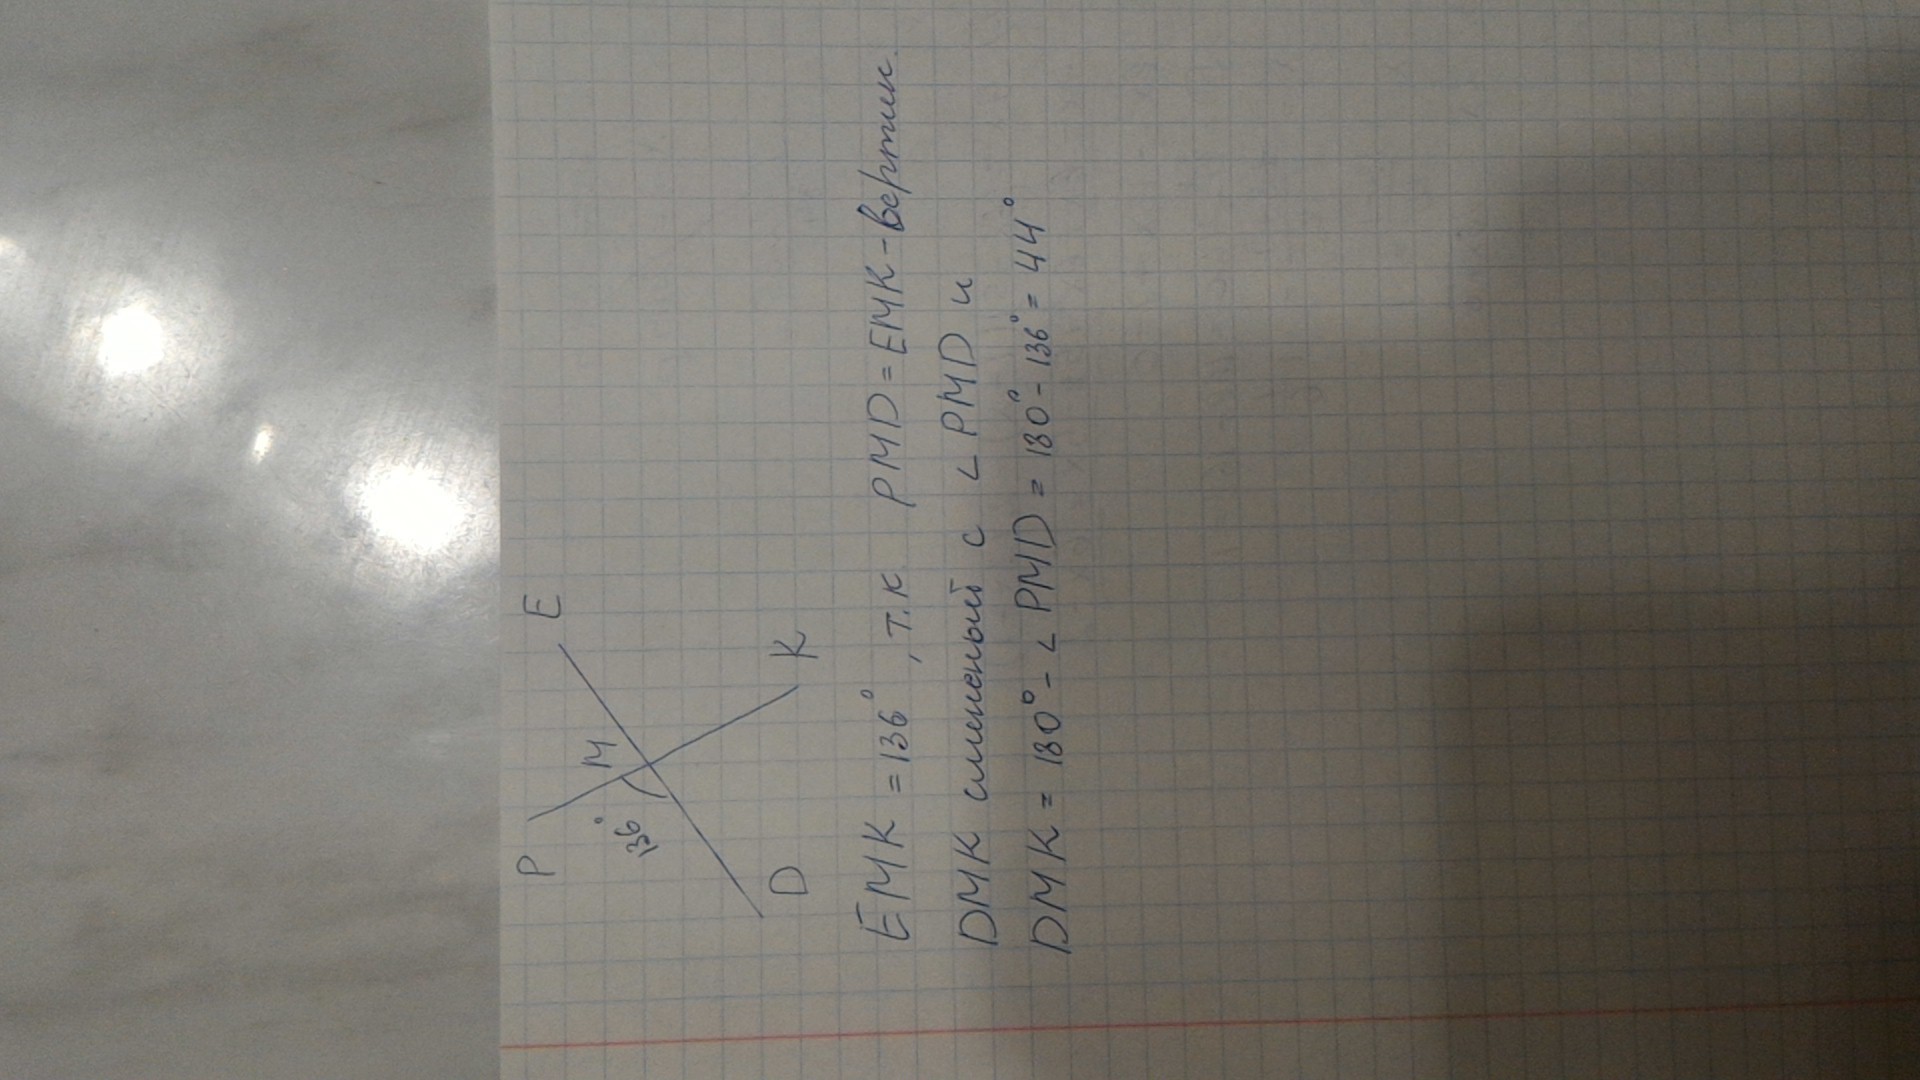 P
E
M
136°
D
K
EMK = 136°, т.к PMD = EMK - вертик.
DMK сменный с ∠PMD и
DMK = 180° - ∠PMD = 180° - 136° = 44°